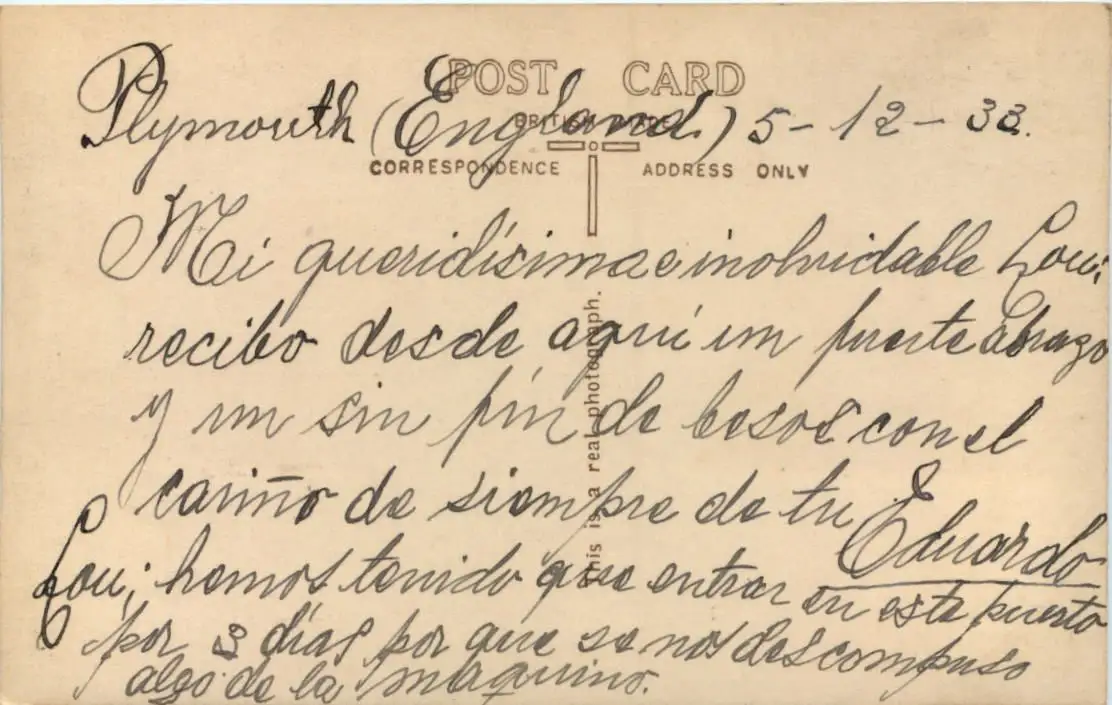 POST CARD
Plymouth (England.) 5-12-33.
BRITISH MADE
CORRESPONDENCE ADDRESS ONLY
Mi queridísima e inolvidable Loui,
recibo desde aquí un fuerte abrazo
y un sin fín de besos con el
cariño de siempre de tu Eduardo
Loui; hemos tenido que entrar en este puerto
por 3 días por que se nos descompuso
algo de la maquina.
This is a real photograph.